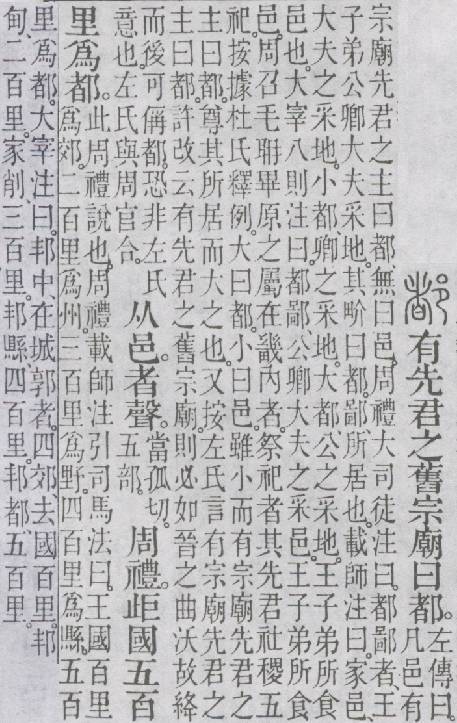 都有先君之舊宗廟曰都。左傳曰。凡邑有
宗廟先君之主曰都。無曰邑。周禮大司徒注曰。都鄙者、王
子弟公卿大夫采地。其畍曰都。鄙所居也。載師注曰。家邑、
大夫之采地。小都、卿之采地。大都、公之采地。王子弟所食
邑也。大宰八則注曰。都鄙、公卿大夫之采邑。王子弟所食
邑。周召毛聃畢原之屬在畿內者。祭祀者、其先君社稷五
祀。按據杜氏釋例。大曰都。小曰邑。雖小而有宗廟先君之
主曰都。尊其所居而大之也。又按左氏言有宗廟先君之
主曰都。許改云有先君之舊宗廟。則必如晉之曲沃故絳
而後可偁都。恐非左氏意也。左氏與周官合。从邑。者聲。當孤切。五部。周禮歫國五百
里爲都。此周禮說也。周禮載師注引司馬法曰。王國百里
爲郊。二百里爲州。三百里爲野。四百里爲縣。五百
里爲都。大宰注曰。邦中、在城郭者。四郊、去國百里。邦
甸、二百里。家削、三百里。邦縣、四百里。邦都、五百里。